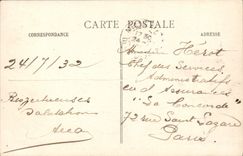 CARTE POSTALE
CORRESPONDANCE
ADRESSE
24/7/32
Respectueuses
Salutations
Monsieur Hérot
Chef des Services
Administratifs
"La Concorde"
72 rue Saint Lazare
Paris